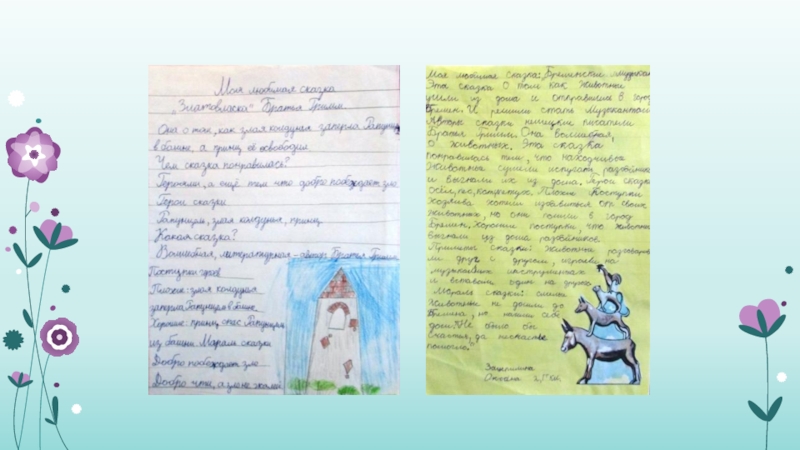 Моя любимая сказка
„Златовласка" Братья Гримм
Она о том, как злая колдунья заперла Рапунцель
в башне, а принц её освободил
Чем сказка понравилась?
Героями, а ещё тем что добро побеждает зло
Герои сказки
Рапунцель, злая колдунья, принц
Какая сказка?
Волшебная, литературная – автор Братья Гримм
Поступки героев
Плохие: злая колдунья
заперла Рапунцель в башне.
Хорошие: принц спас Рапунцель
из башни. Мораль сказки
Добро побеждает зло
Добро чти, а зло не жалей
Моя любимая сказка: Бременские музыканты
Эта сказка о том как животные
ушли из дома и отправились в город
Бремен. И решили стать музыкантами
Автор сказки немецкие писатели
Братья Гримм. Она волшебная,
о животных. Эта сказка
понравилась тем, что находчивые
животные сумели испугать разбойников
и выгнали их из дома. Герои сказки
осёл, пёс, кот, петух. Плохие поступки
хозяева хотели избавиться от своих
животных, но они пошли в город
Бремен. Хорошие поступки, что животные
выгнали из дома разбойников.
сказки: животные разговарива
ли друг с другом, играли на
музыкальных инструментах
и вставали один на другого
Мораль сказки:
Животные не дошли до
Бремена, но нашли себе
дом. Не было бы
счастья, да несчастье
помогло.
Оксана 2 "